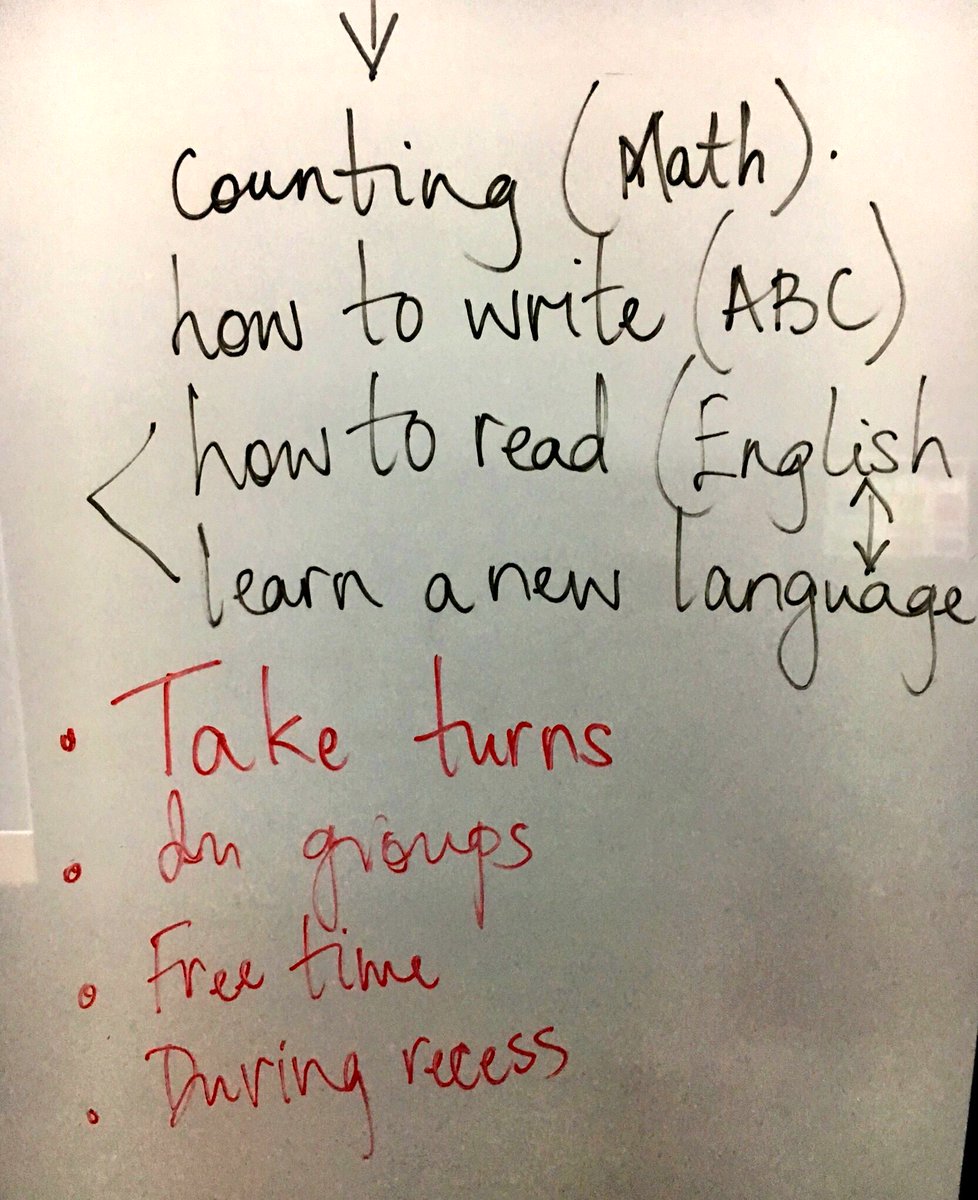 Counting (Math).
how to write (ABC)
how to read (English
learn a new language
• Take turns
• In groups
• Free time
• During recess